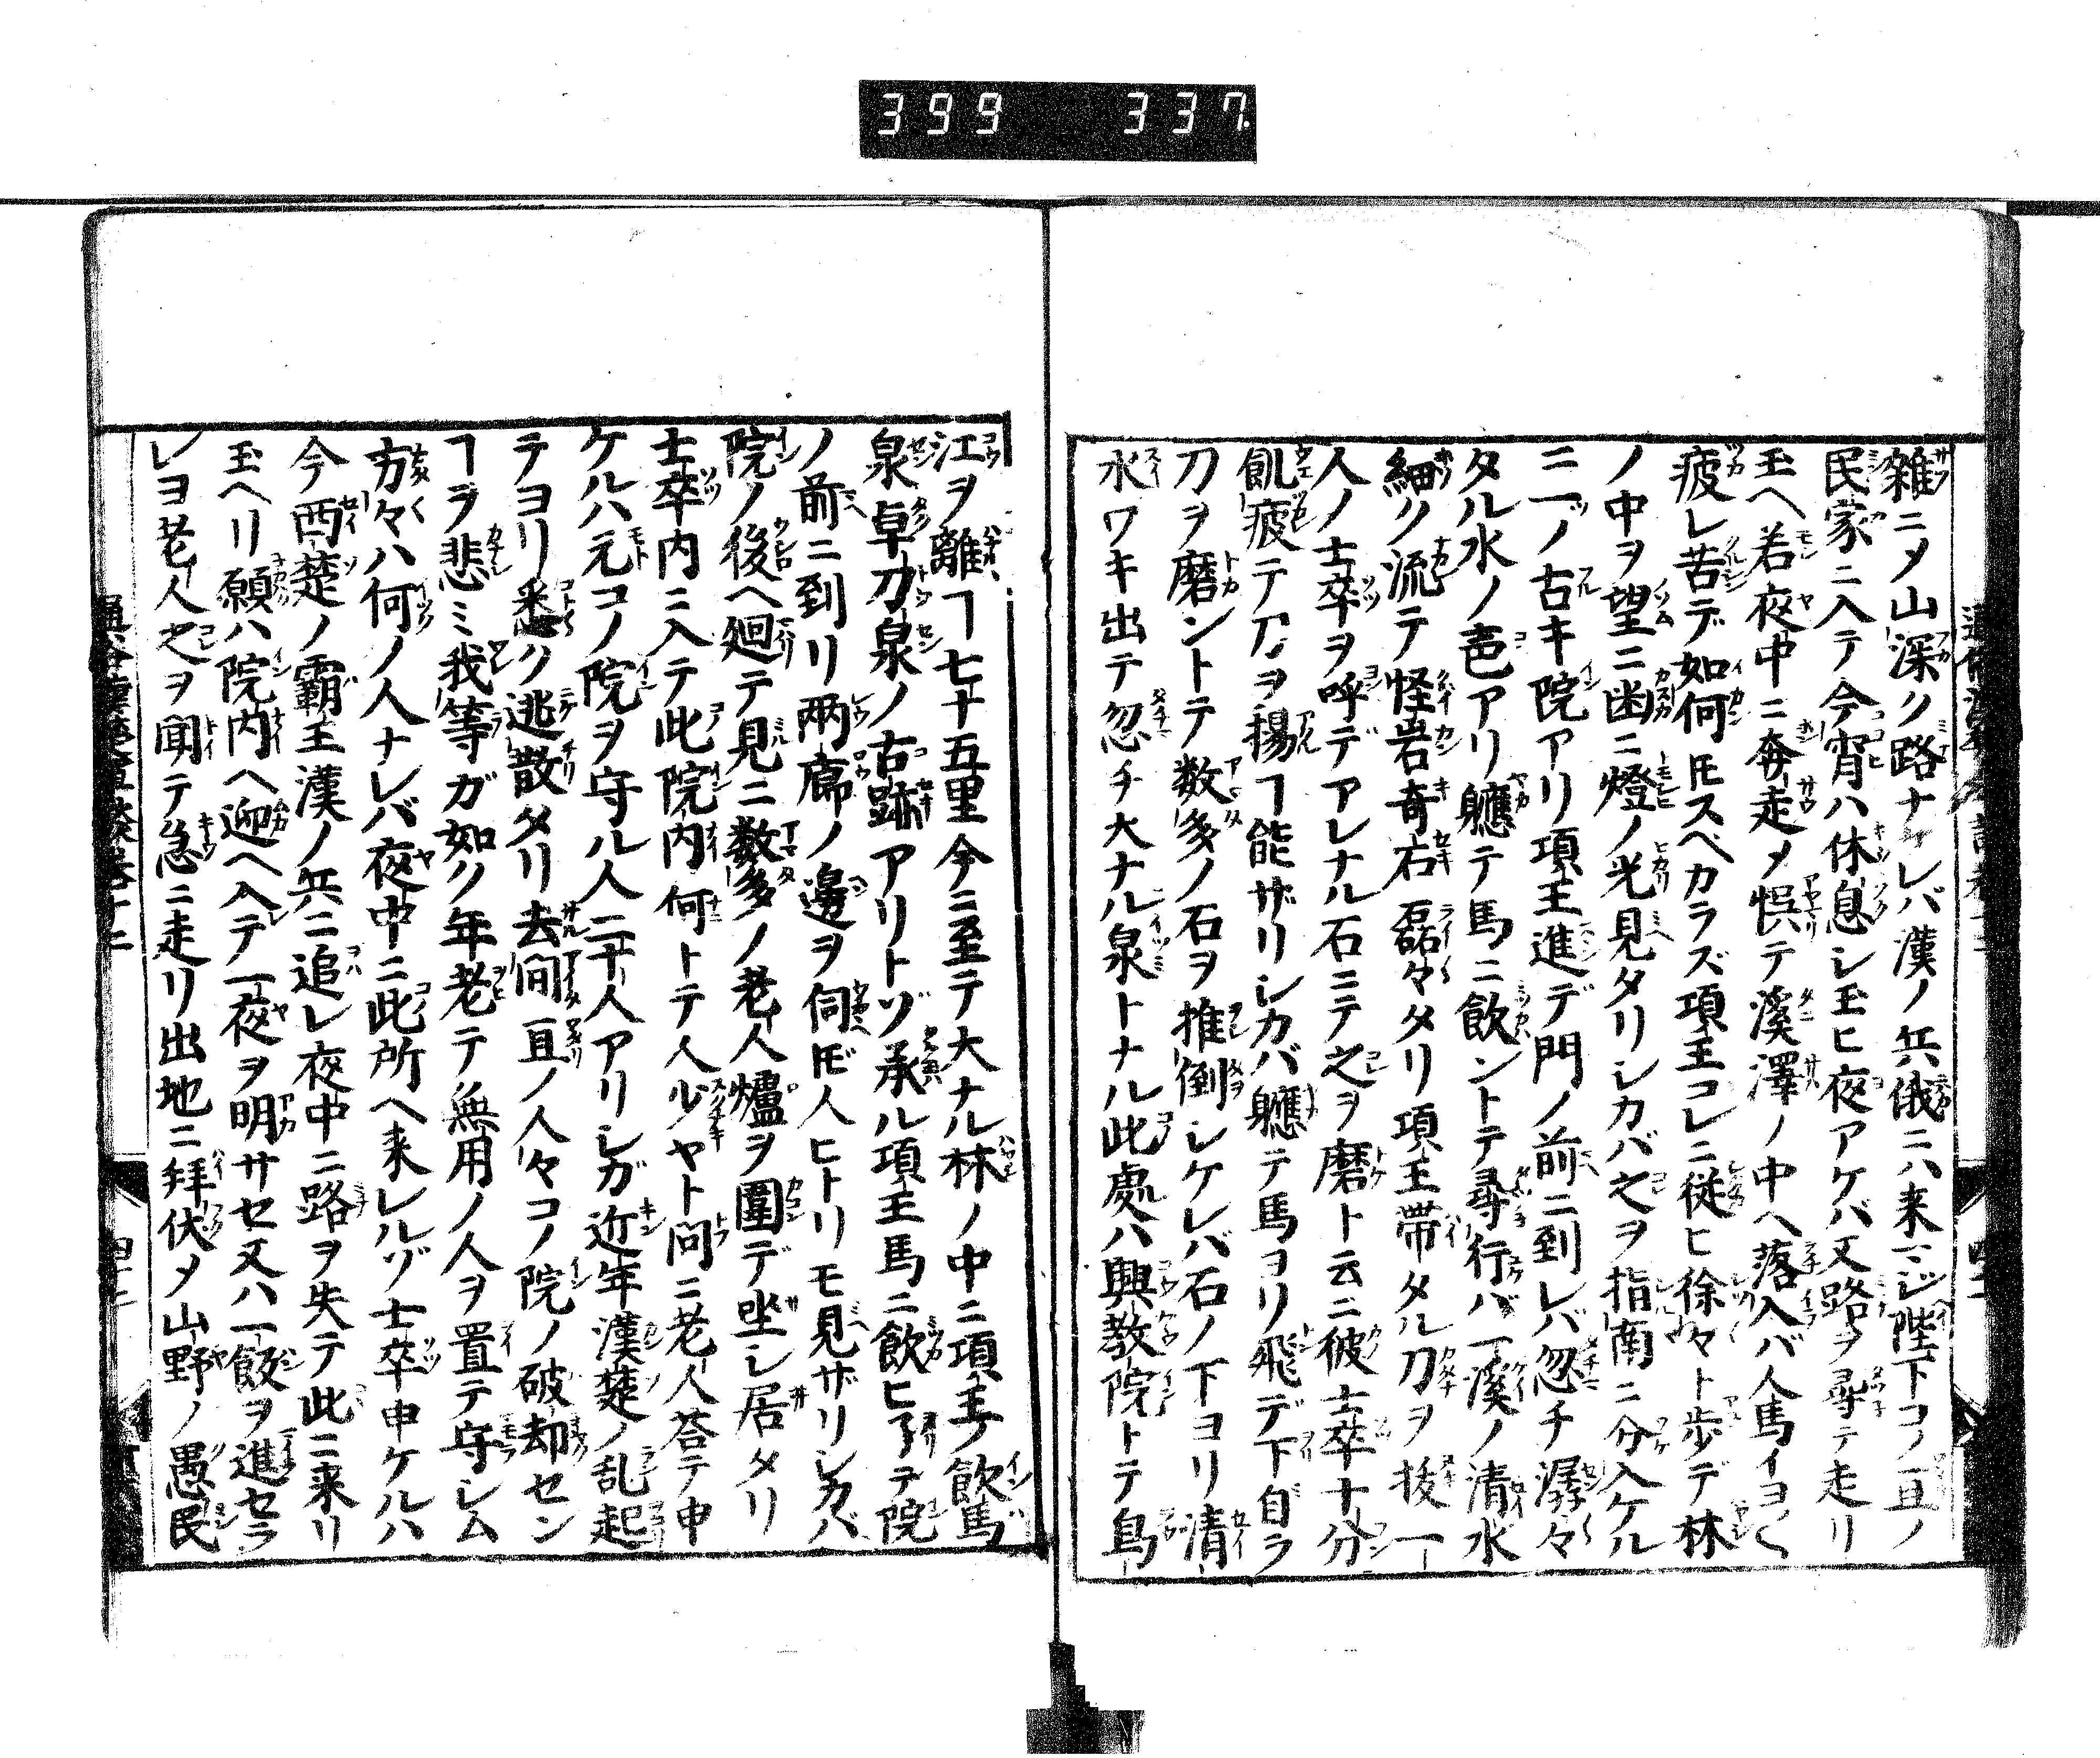 399 337
雑ニ〆山深ク路ナケレバ漢ノ兵俄ニハ来マジ陛下コノ亘ノ
民家ニ入テ今宵ハ休息シ玉ヒ夜アケバ又路ヲ尋テ走リ
玉へ若夜中ニ奔走〆悞テ溪澤ノ中へ落入バ人馬イヨ〱
疲レ苦デ如何𪜈スベカラズ項王コレニ従ヒ徐々ト歩デ林
ノ中ヲ望ニ幽ニ燈ノ光見タリシカバ之ヲ指南ニ分入ケル
ニ一ツノ古キ院アリ項王進デ門ノ前ニ到レバ忽チ潺々
タル水ノ声アリ軈テ馬ニ飲ントテ尋行バ一溪ノ清水
細ク流テ怪岩奇石磊々タリ項王帶タル刀ヲ抜一
人ノ士卒ヲ呼デアレナル石ニテ之ヲ磨ト云ニ彼士卒十分
飢疲テ刀ヲ揚ヿ能ザリシカバ軈テ馬ヨリ飛デ下自ラ
刀ヲ磨ントテ数多ノ石ヲ推倒シケレバ石ノ下ヨリ清
水ワキ出テ忽チ大ナル泉トナル此處ハ興教院トテ烏
江ヲ離ヿ七十五里今ニ至テ大ナル林ノ中ニ項王ノ飲馬
泉卓刀泉ノ古跡アリトゾ承ル項王馬ニ飲ヒ了テ院
ノ前ニ到リ兩廊ノ邊ヲ伺𪜈人ヒトリモ見ザリシカバ
院ノ後へ廻テ見ニ数多ノ老人爐ヲ圍デ坐シ居タリ
士卒内ニ入テ此院内何トテ人少ヤト問ニ老人荅テ申
ケルハ元コノ院ヲ守ル人二十人アリシガ近年漢楚ノ乱起
テヨリ悉ク逃散タリ去間亘ノ人々コノ院ノ破却セン
ヿヲ悲ミ我等ガ如ク年老テ無用ノ人ヲ置テ守シム
方々ハ何ノ人ナレバ夜中ニ此所へ来レルゾ士卒申ケルハ
今西楚ノ覇王漢ノ兵ニ追レ夜中ニ路ヲ失テ此ニ来リ
玉ヘリ願ハ院内へ迎へ入テ一夜ヲ明サセ又ハ一飯ヲ進セラ
レヨ老人之ヲ聞テ急ニ走リ出地ニ拜伏〆山野ノ愚民